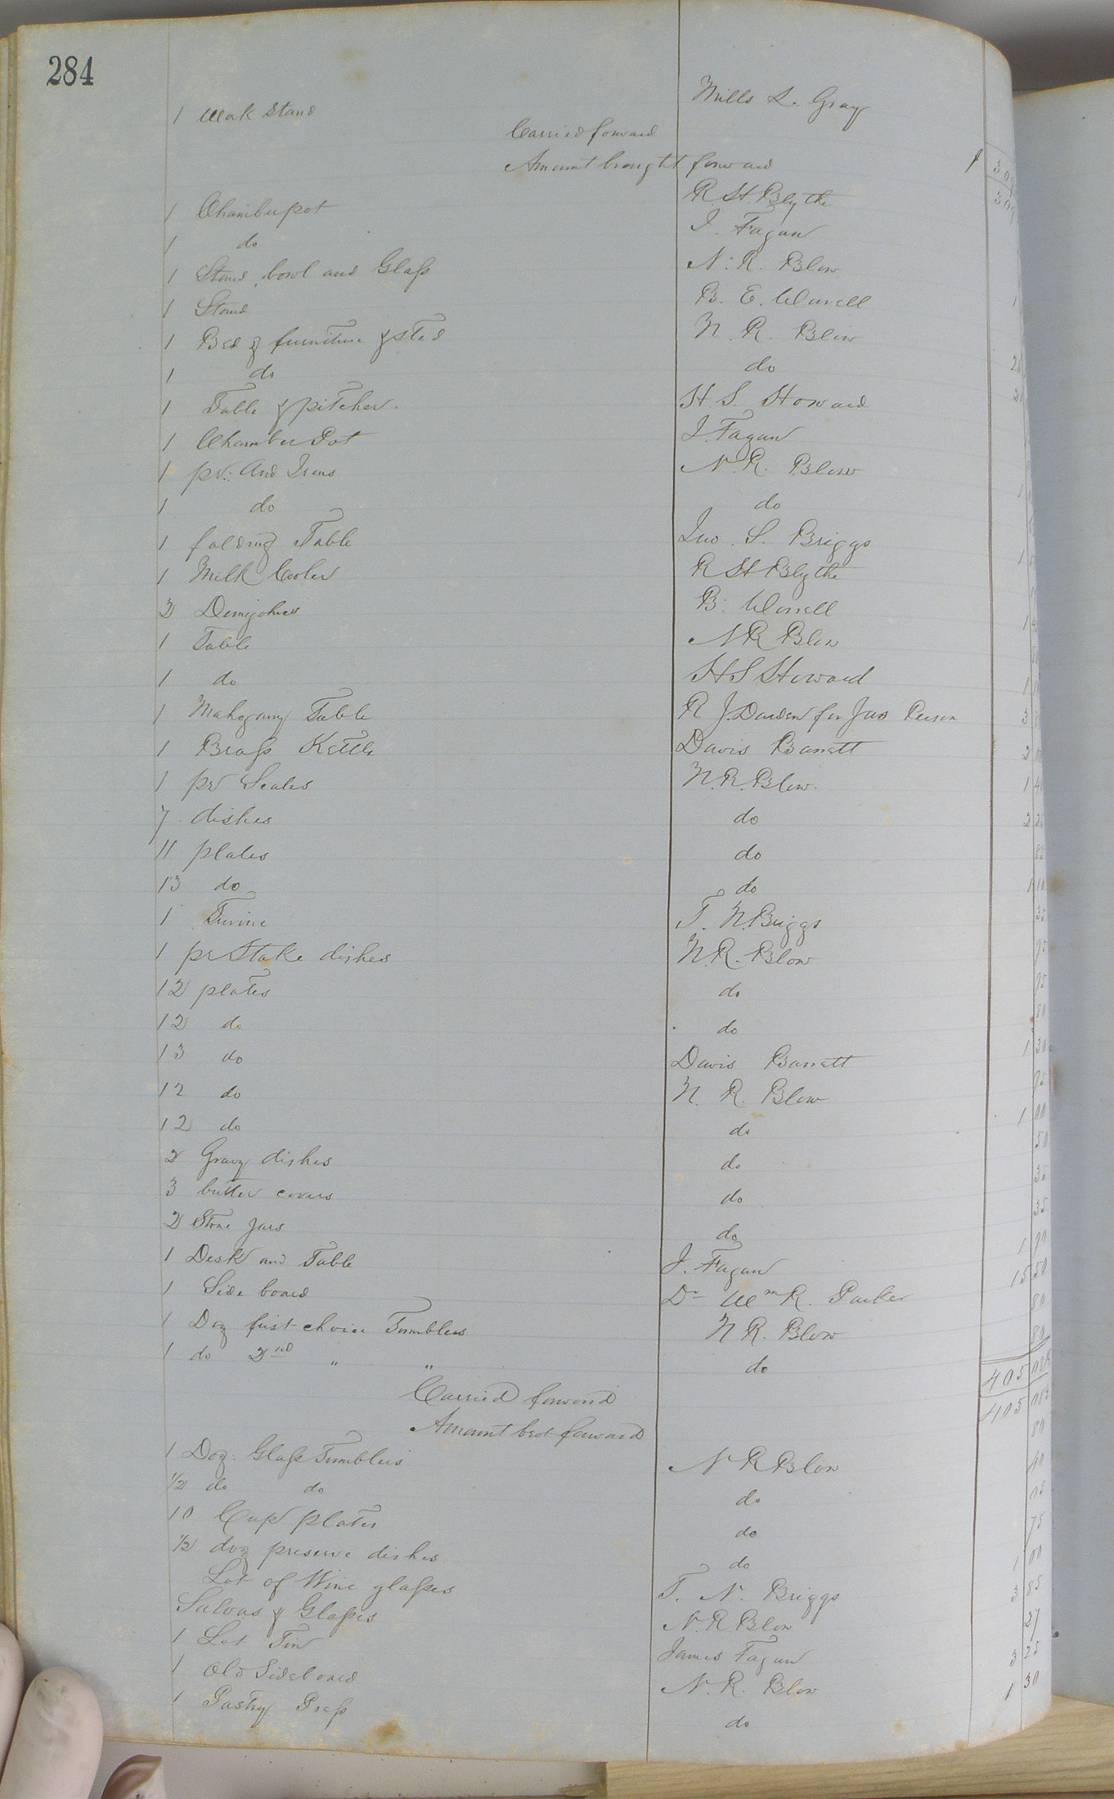 284
1 Wash Stand Mills L. Gray
Carried forward
Amount brought forward $
1 Chamber pot R St Blythe
1 do J. Fagan
1 Stand, bowl and Glass N. R. Blow
1 Stand B. E. Worrell
1 Bed & furniture & sted N. R. Blow
1 do do
1 Table & pitcher. H S. Howard
1 Chamber Pot J. Fagan
1 pr: And Irons N. R. Blow
1 do do
1 folding Table Jno. S. Briggs
1 Milk Cooler R St Blythe
2 Demijohns B. Worrell
1 Table N R Blow
1 do H S Howard
1 Mahogany Table R J. Darden for Jas 3
1 Brass Kettle Davis Barrett 2
1 pr Scales N. R. Blow. 1
7 dishes do 2
11 plates do
13 do do 1 10
1 Turine T. N. Briggs
1 pr Stake dishes N. R. Blow 75
12 plates do 75
12 do do 80
13 do Davis Barrett 1 30
12 do N. R. Blow 75
12 do do 1 00
2 Gravy dishes do 50
3 butter covers do 35
2 Stone Jars do 35
1 Desk and Table J. Fagan 1 90
1 Side board Dr Wm R. Parker 15 50
1 Doz first choice Tumblers N R. Blow 80
1 do 2nd " " do 80
Carried forward 405
Amount brot forward 405
1 Doz. Glass Tumblers N R Blow 80
1/2 do do do 40
10 Cup plates do 05
1/2 doz preserve dishes do 75
Lot of Wine glasses T. N. Briggs 1 00
Salvas & Glasses N. R Blow 3 85
1 Lot Tin James Fagan 27
1 Old Sideboard N. R. Blow 3 25
1 Pastry Press do 1 30